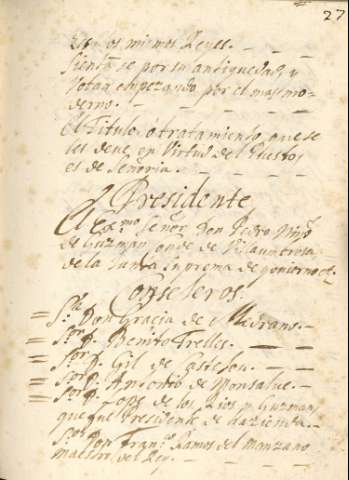 27
los mismos Reyes.
sientanse por su antiguedad, y
Votan empezando por el mas mo-
derno.
El Titulo, ó tratamiento, que se
les deve, en Virtud del Puesto
es de Señoria.
Presidente
El Exmo. Señor Don Pedro Niño
de Guzman, Conde de Villaumbrosa,
de la Junta Suprema de govierno
Consejeros.
Sr. Don Garcia de Medrano.
Sor. D. Benito Trelles.
Sor. D. Gil de Castejon.
Sor. D. Antonio de Monsalue.
Sor. D. Lope de los Rios y Guzman,
que fue Presidente de Hazienda.
Sor. Don Franco. Ramos del Manzano
maestro del Rey.